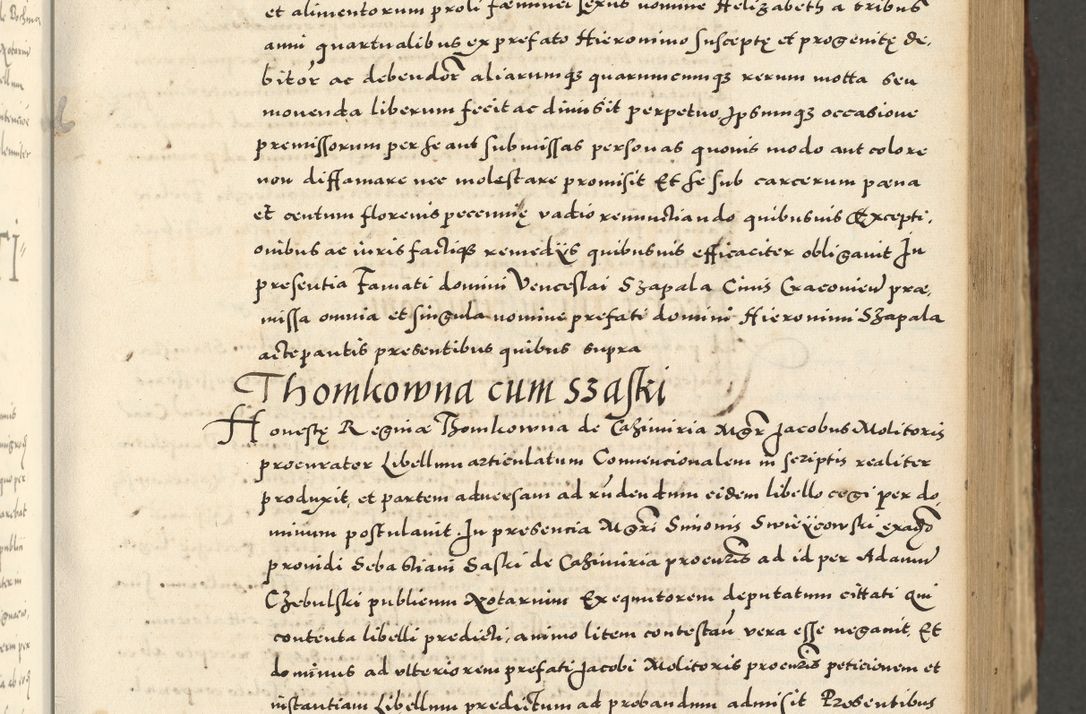 et alimentorum proli fæminei sexus nomine Helizabeth a tribus
anni quartualibus ex prefato Hieronimo susceptę et progenitę de,
bitor ac debendor aliarumqȝ quarumcumqȝ rerum motta seu
mouenda liberum fecit ac dimisit perpetuo Ipsumqȝ occasione
premissorum per se aut submissas personas quouis modo aut colore
non diffamare nec molestare promisit Et se sub carcerum pæna
et centum florenis pecunię vadio renunctiando quibusuis Excepti,
onibus ac iuris factiqȝ remedijs quibusuis efficaciter obligauit In
presentia Famati domini Venceslai Szapala Ciuis Cracouien præ,
missa omnia et singula nomine prefati domini Hieronimi Szapala
acceptantis presentibus quibus supra
Thomkowna cum Szaski
Honestę Reginæ Thomkowna de Cazimiria Mgr Jacobus Molitoris
procurator Libellum articulatum Conuencionalem in scriptis realiter
produxit, et partem aduersam ad rñdendum eidem libello cogi per do
minum postulauit. In presencia Mgri Simonis Swieÿcowski exađo
prouidi Sebastiani Saski de Cazimiria procuris ad id per Adamū
Czebulski publicum Notarium Exequutorem deputatum cittati qui
contenta libelli predicti, animo litem contestañ vera esse negauit, Et
dominus ad vlteriorem prefati Jacobi Molitoris procuris peticionem et
instantiam Libellum predictum ad probandum admisit Presentibus